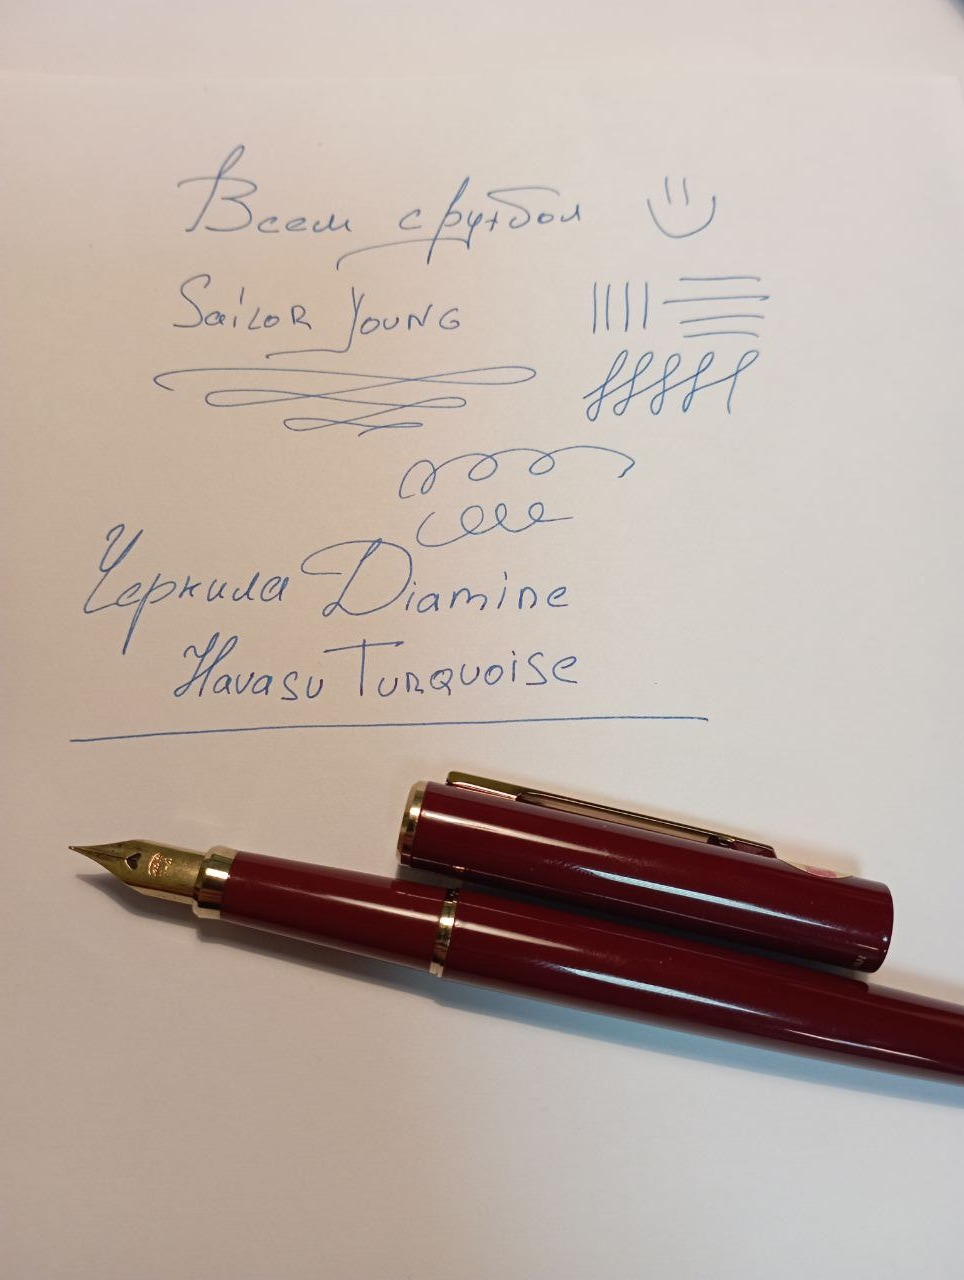 Всем футбол
Sailor Young
Чернила Diamine
Havasu Turquoise